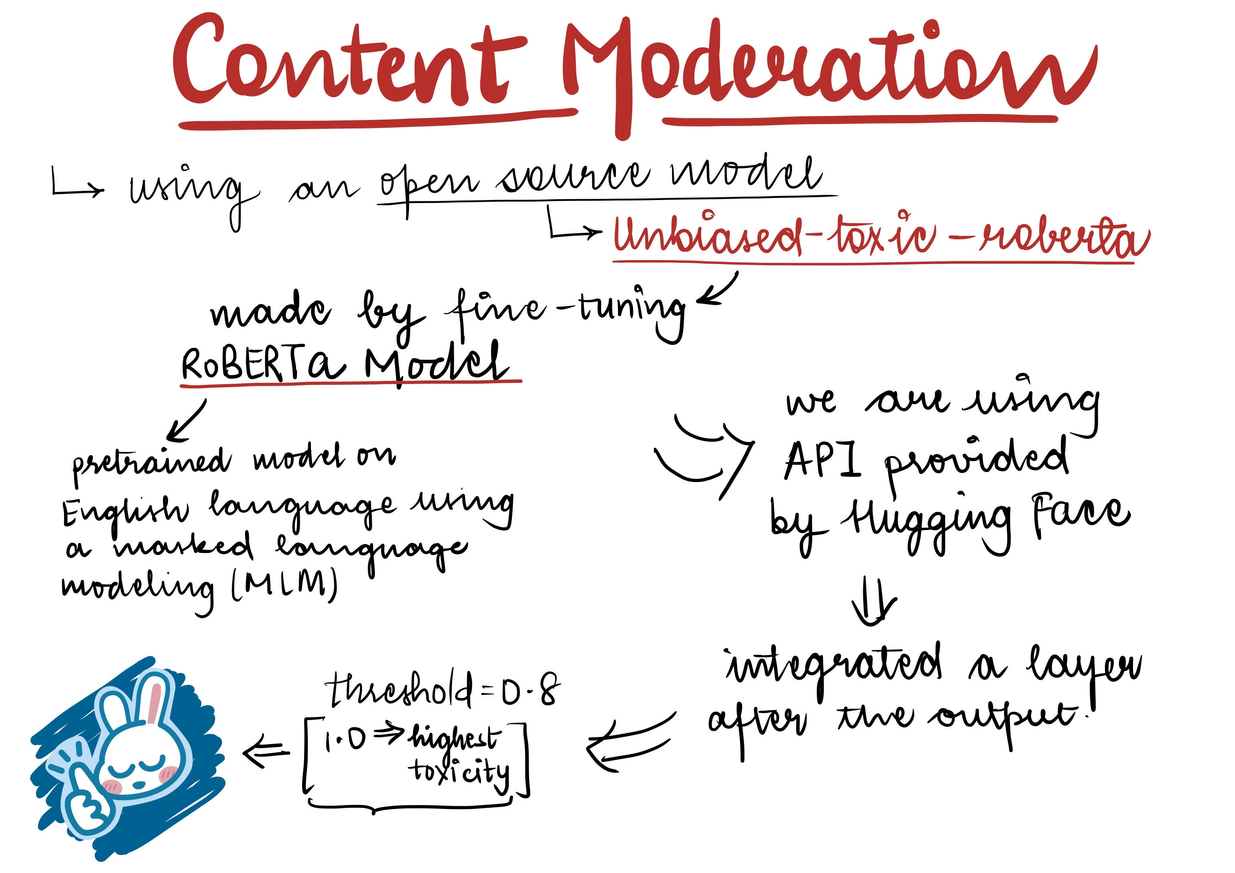 Content Moderation
using an open source model
Unbiased-toxic-roberta
made by fine-tuning
RoBERTa Model
pretrained model on
English language using
a masked language
modeling (MLM)
we are using
API provided
by Hugging Face
integrated a layer
after the output.
threshold = 0.8
[1.0 ⇒ highest
toxicity]